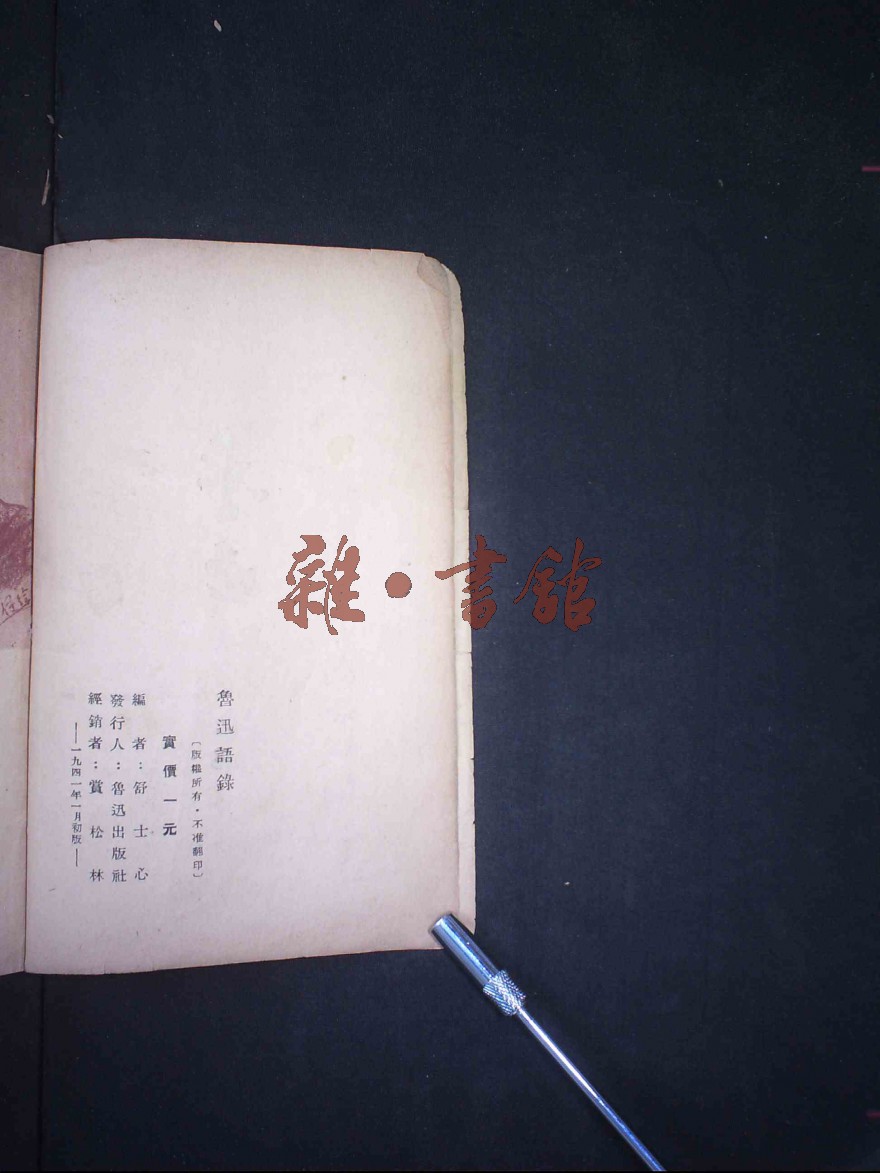 魯迅語錄
〔版權所有·不准翻印〕
實價一元
編者：舒士心
發行人：魯迅出版社
經銷者：賞松林
——一九四一年一月初版——
雜·書館